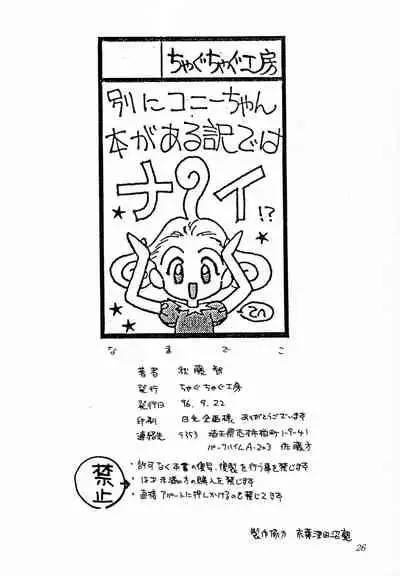 ちゃぐちゃぐ工房
別にコニーちゃん
本がある訳では
ナイ!?
てへ
なまでこ
著者 秋藤智
発行 ちゃぐちゃぐ工房
発行日 '96.9.22
印刷 日光企画様、ありがとうございます
連絡先 〒353 埼玉県志木市柏町1-9-41
パークハイムA-203 佐藤方
禁止
・許可なく本書の複写、複製を行う事を禁じます
・は士未満の方の購入を禁じます
・直接アパートに押しかけるのも禁じてます
製作協力 京葉津田沼塾
26